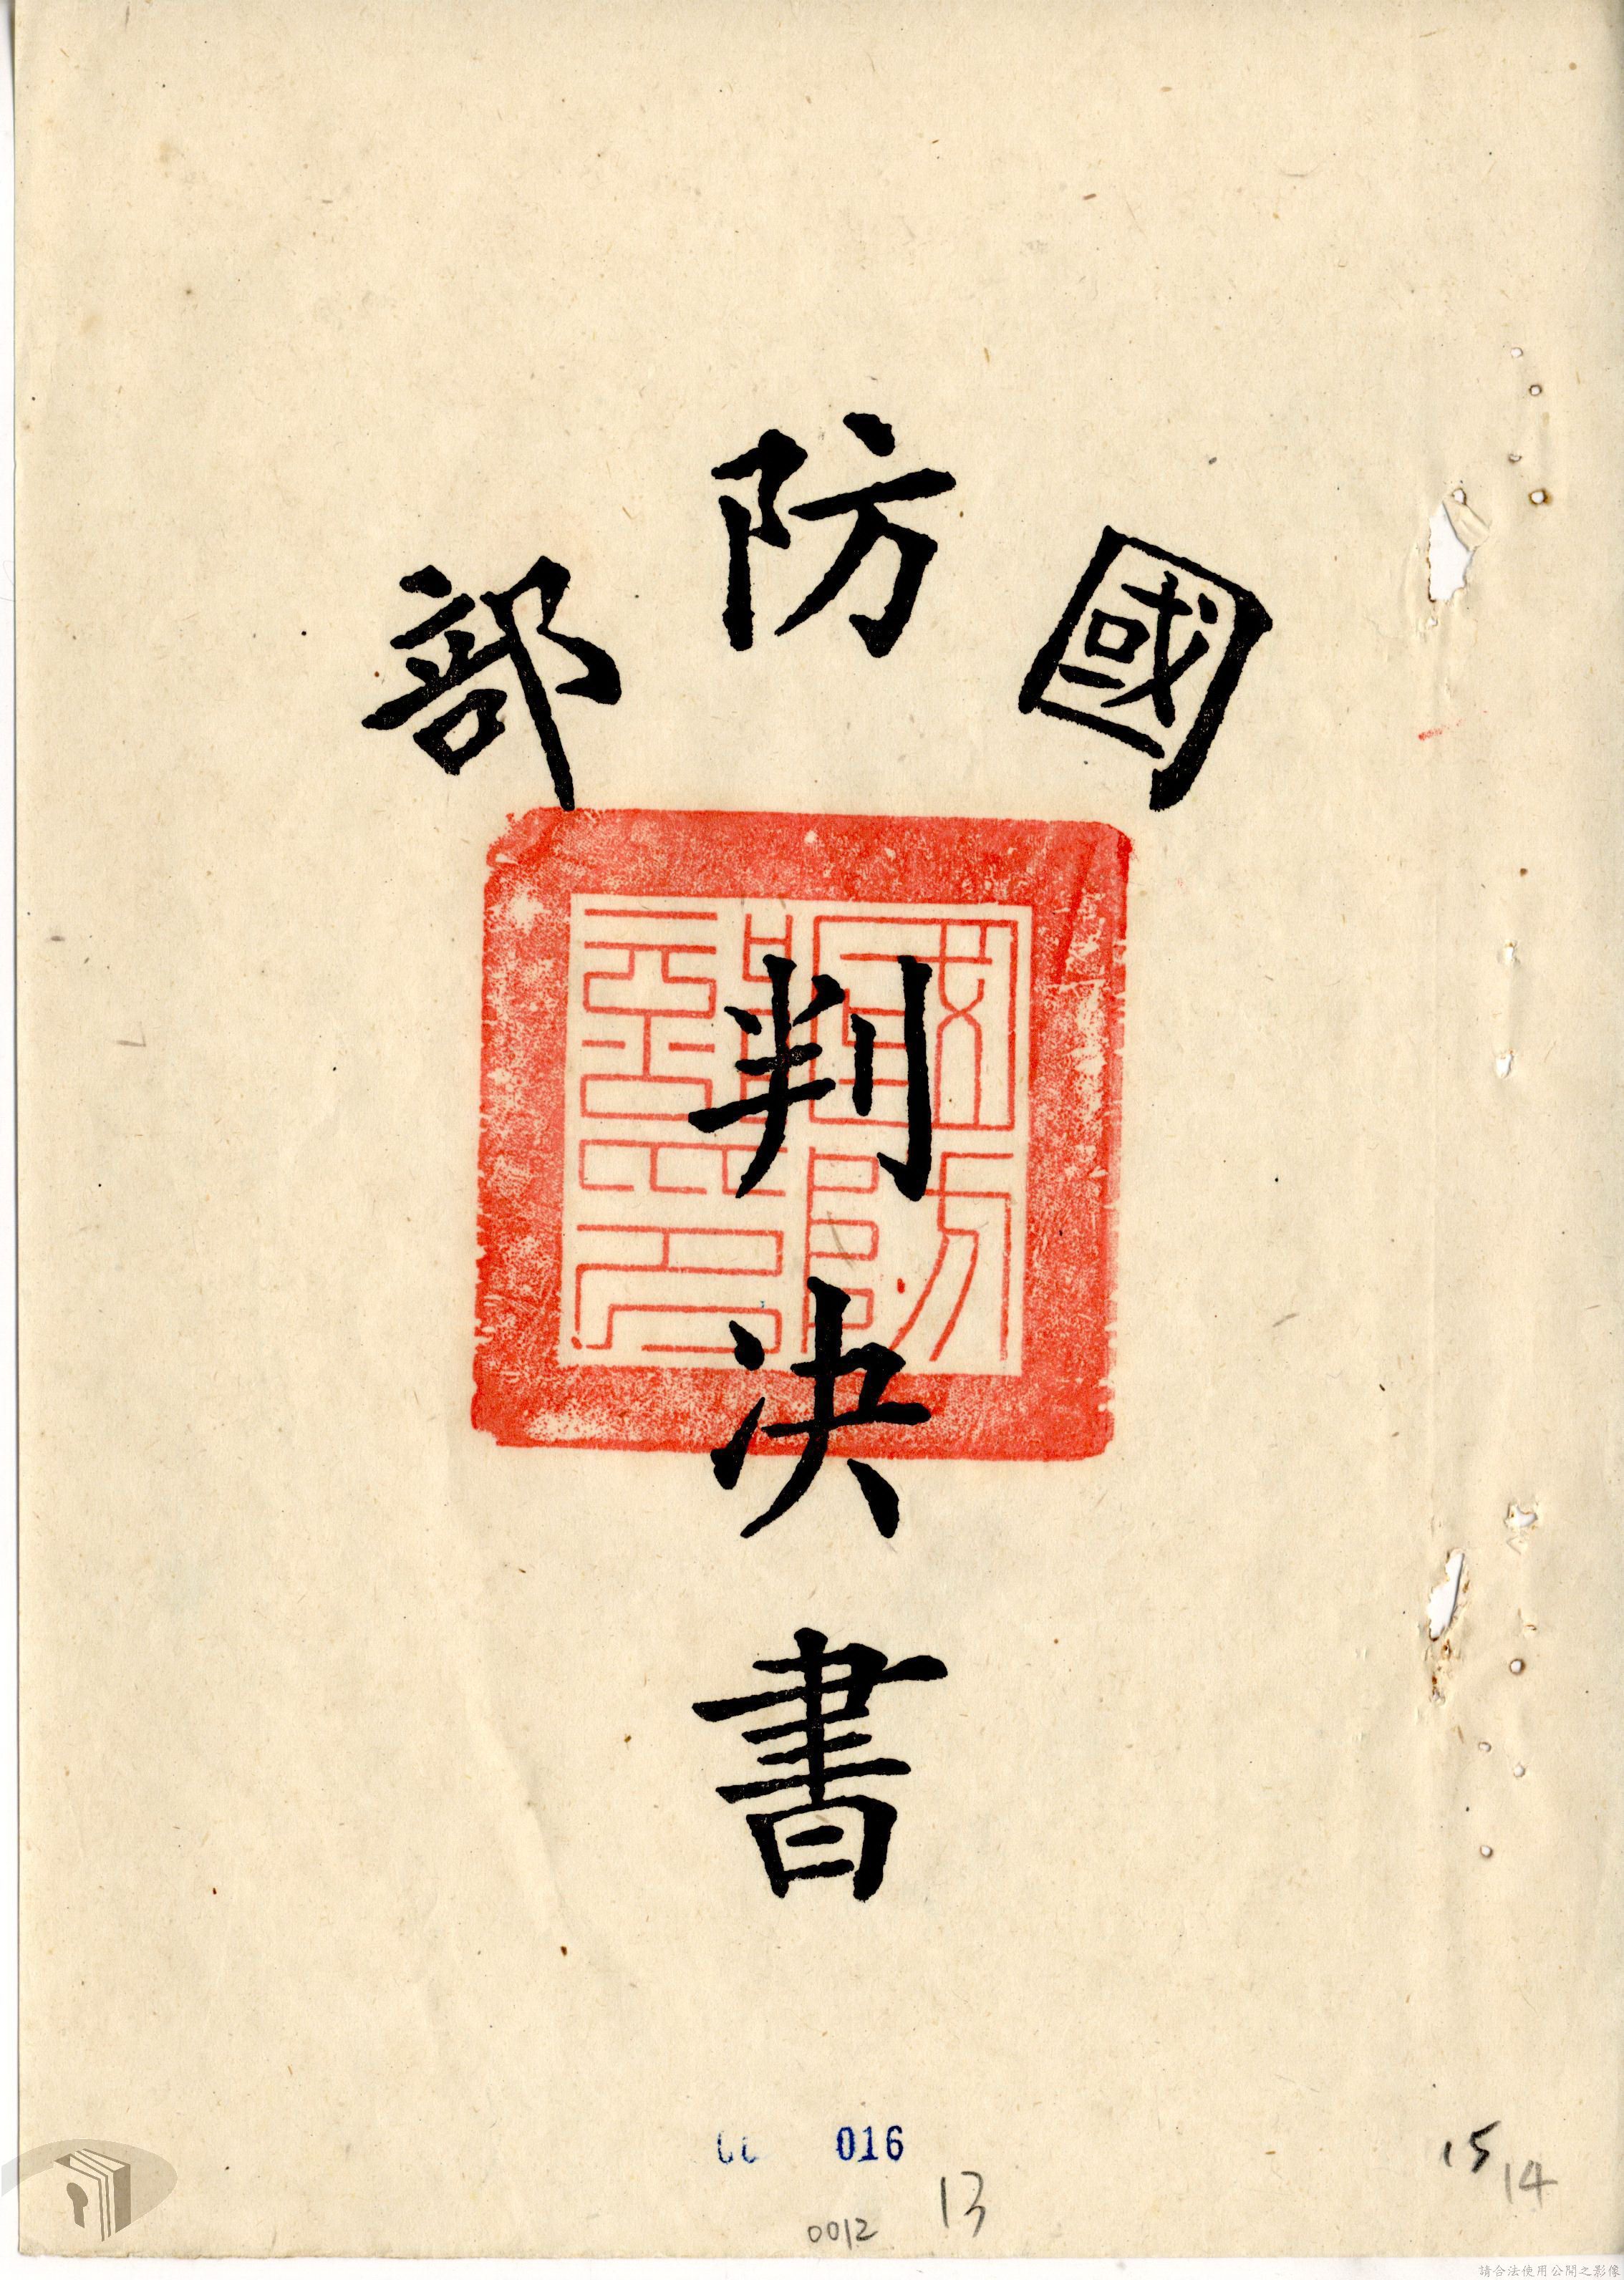 國防部
判決書
國防部印
016
13
0012
15
14
請合法使用公開之影像